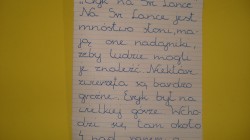 "Eryk na Sri Lance
Na Sri Lance jest
mnóstwo słoni, ma-
ją one nadajniki,
żeby ludzie mogli
je znaleźć. Niektóre
zwierzęta są bardzo
groźne. Eryk był na
wielkiej górze. Wcho-
dzi się tam około